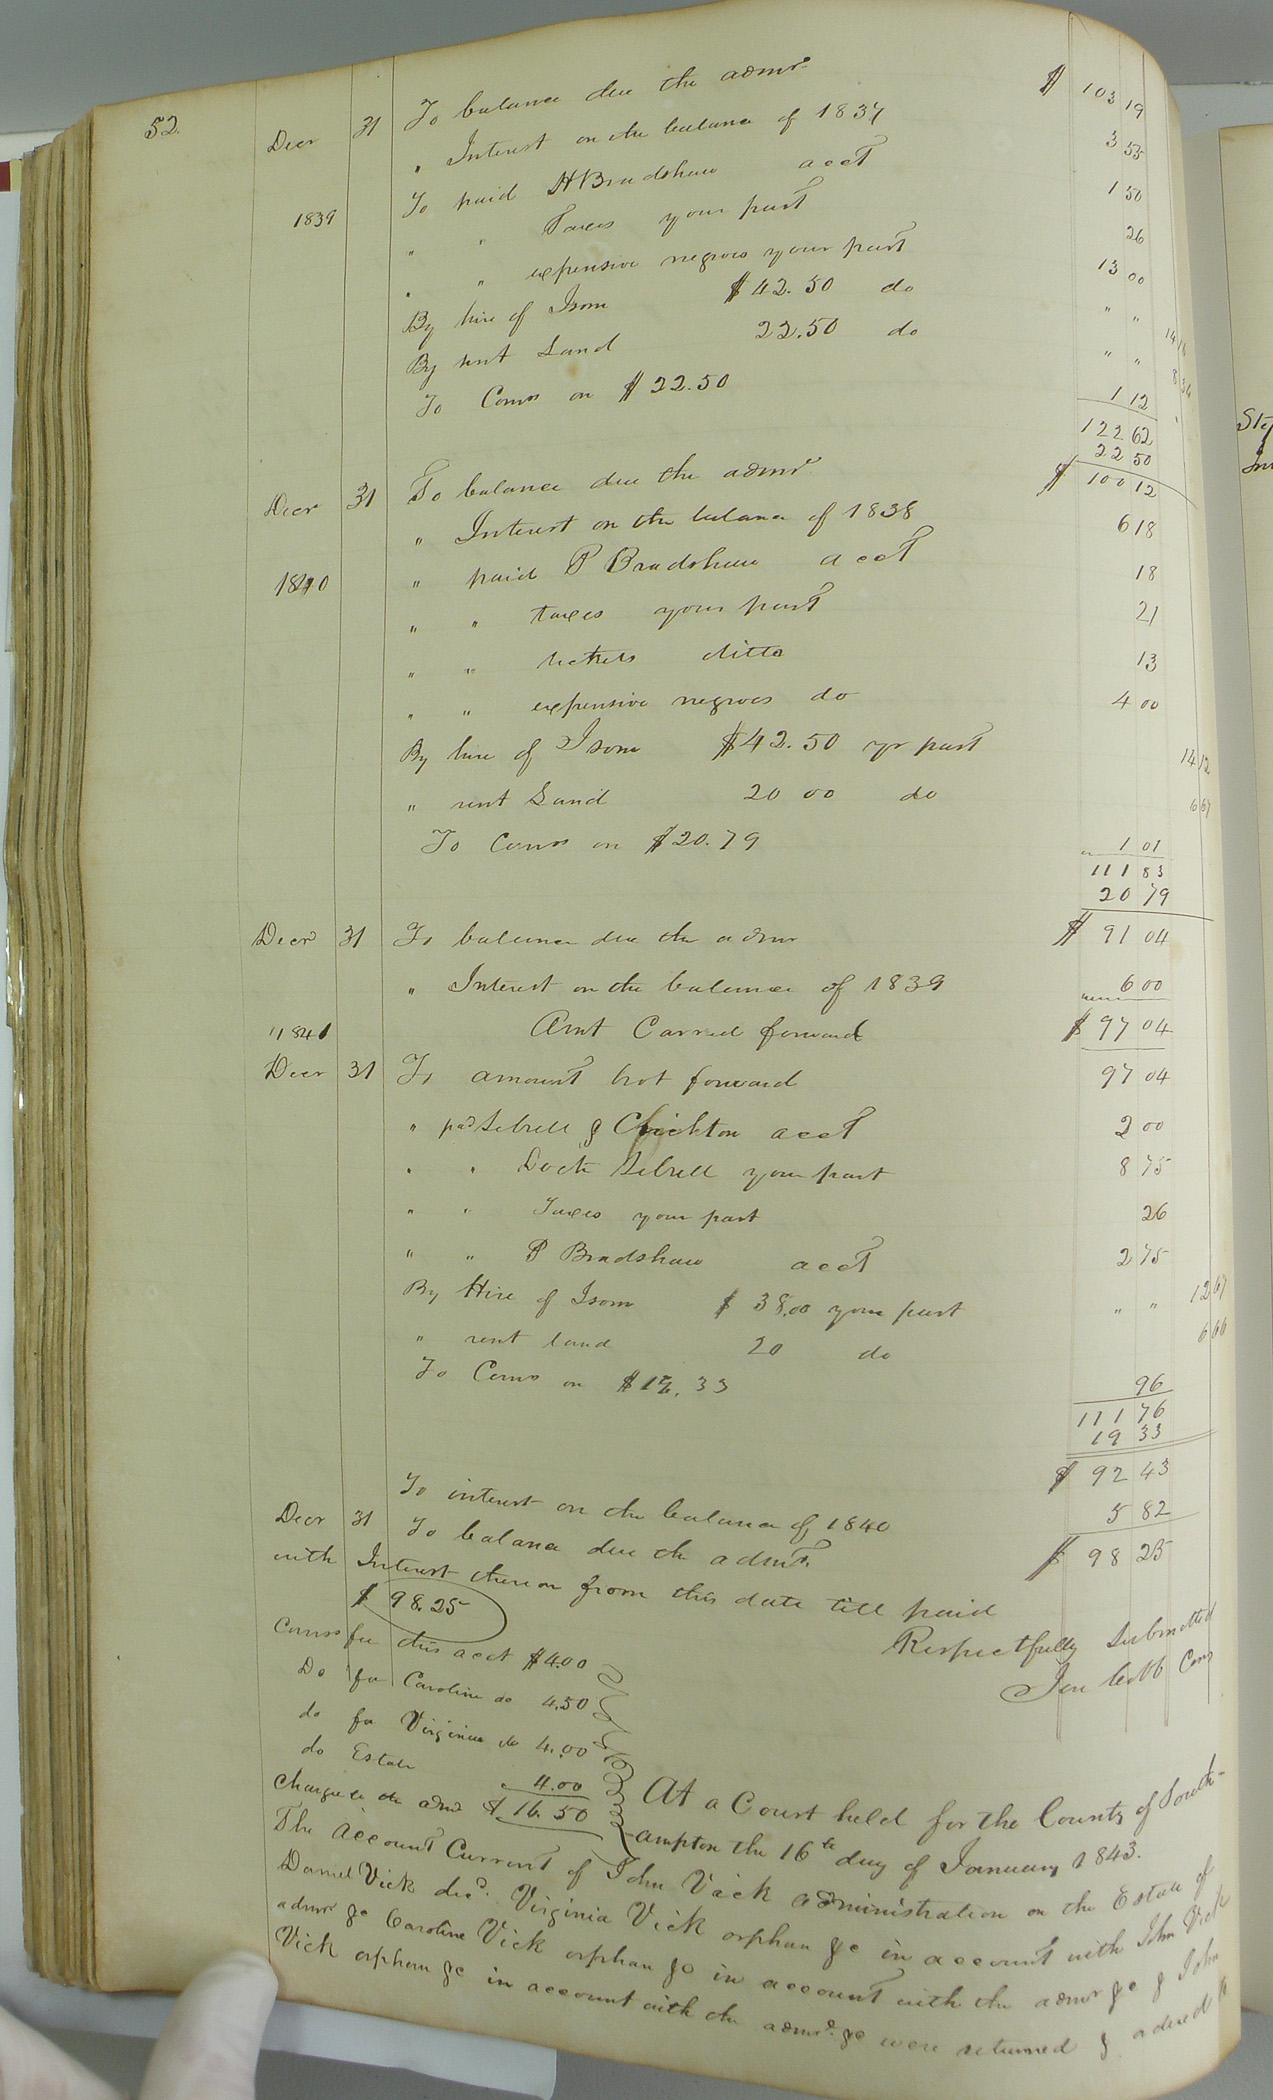 52.
Decr 31 To balance due the admr $ 103 19
" Interest on the balance of 1837 3 55
1839 To paid H Bradshaw acct 1 50
" " Taxes your part 26
" " expensive negroes your part 13 00
By hire of Isom $42.50 do " " 14 16
By rent Land 22.50 do " " 8 34
To Coms on $22.50 1 12
122 62
22 50
Decr 31 To balance due the admr $ 100 12
" Interest on the balance of 1838 6 18
1840 " paid P Bradshaw acct 18
" " taxes your part 21
" " tickets ditto 13
" " expensive negroes do 4 00
By hire of Isom $42.50 yr part 14 12
" rent Land 20 00 do 6 67
To Coms on $20.79 1 01
111 83
20 79
Decr 31 To balance due the admr $ 91 04
" Interest on the balance of 1839 6 00
1841 Amt Carred forward $ 97 04
Decr 31 To amount brot forward 97 04
" pad Sebrell & Chickton acct 2 00
" " Doctr Sebrell your part 8 75
" " Taxes your part 26
" " P Bradshaw acct 2 75
By Hire of Isom $ 38.00 your part " " 12 67
" rent land 20 do 6 66
To Coms on $19.33 96
111 76
19 33
$ 92 43
To interest on the balance of 1840 5 82
Decr 31 To balance due the admr $ 98 25
with Interest thereon from this date till paid
$ 98.25
Respectfully Submitted
Jere Cobb Com
Coms fee this acct $4.00
Do for Caroline do 4.50
do for Virginia do 4.00
do Estate 4.00
Charged to the admr $ 16.50
At a Court held for the County of South-
ampton the 16th day of January 1843.
The Account Current of John Vick administration on the Estate of
Daniel Vick decd. Virginia Vick orphan &c in account with John Vick
admr &c Caroline Vick orphan &c in account with the admr &c & John
Vick orphan &c in account with the admr &c were returned & ordered to